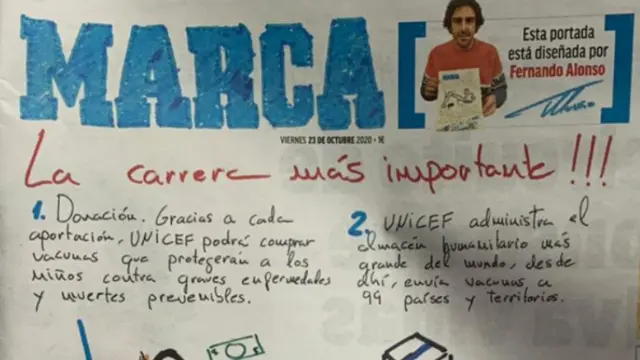 MARCA
Esta portada
está diseñada por
Fernando Alonso
VIERNES 23 DE OCTUBRE 2020 · 1€
La carrera más importante!!!
1. Donación. Gracias a cada
aportación, UNICEF podrá comprar
vacunas que protegerán a los
niños contra graves enfermedades
y muertes prevenibles.
2. UNICEF administra el
almacén humanitario más
grande del mundo, desde
ahí, envía vacunas a
99 países y territorios.